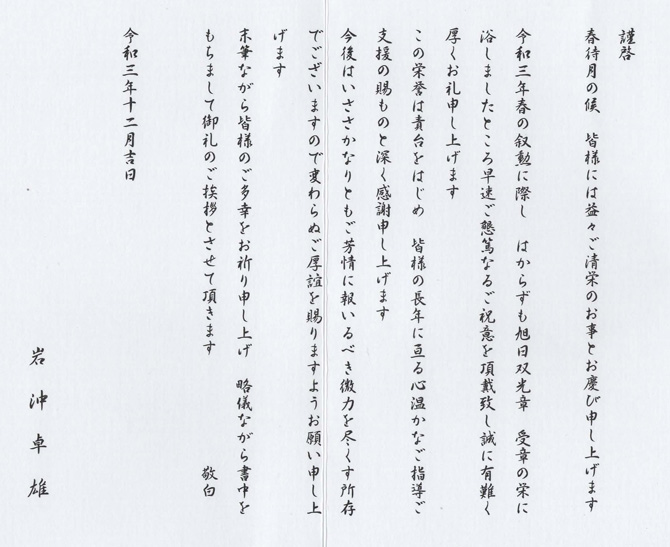 謹啓
春待月の候　皆様には益々ご清栄のお事とお慶び申し上げます
令和三年春の叙勲に際し　はからずも旭日双光章　受章の栄に
浴しましたところ早速ご懇篤なるご祝意を頂戴致し誠に有難く
厚くお礼申し上げます
この栄誉は貴台をはじめ　皆様の長年に亘る心温かなご指導ご
支援の賜ものと深く感謝申し上げます
今後はいささかなりともご芳情に報いるべき微力を尽くす所存
でございますので変わらぬご厚誼を賜りますようお願い申し上
げます
末筆ながら皆様のご多幸をお祈り申し上げ　略儀ながら書中を
もちまして御礼のご挨拶とさせて頂きます
敬白
令和三年十二月吉日
岩沖卓雄